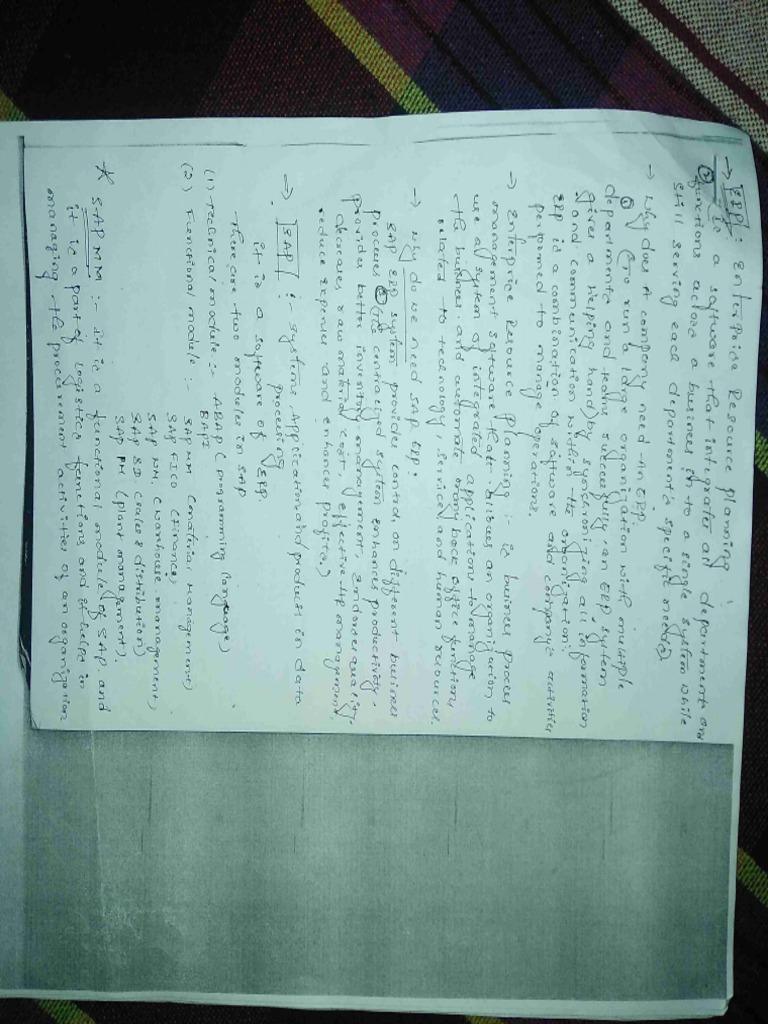 → ERP : Enterprise Resource planning
② (is a software that integrates all department and
functions across a business in to a single system while
still serving each department's specific needs)
→ Why does A company need An ERP.
① (To run a large organization with multiple
departments and teams successfully, an ERP system
gives a helping hand) by synchronizing all information
and communication within the organization.
ERP is a combination of software and company's activities
performed to manage operations.
→ Enterprise Resource planning :- is business process
management software that allows an organization to
use a system of integrated applications to manage
the business and automate many back office functions
related to technology, services and human resources.
→ Why do we need SAP ERP?
SAP ERP system provides control on different business
processes (its centralized system enhances productivity,
provides better inventory management, and quality,
decreases raw material cost, effective management,
reduce expenses and enhances profits.)
→ SAP :- Systems Application and products in data
processing
it is a software of ERP.
There are two modules in SAP
(1) Technical module :- ABAP (programming language)
BAPI
(2) Functional module :- SAP MM (material management)
SAP FICO (Finance)
SAP WM. (warehouse management)
SAP SD. (sales & distribution)
SAP PM (plant management).
* SAP MM :- it is a functional module of SAP and
it is a part of logistics functions and it helps in
managing the procurement activities of an organization